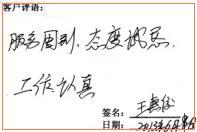 客户评语:
服务周到、态度诚恳
工作认真
签名:
日期: 2013年6月